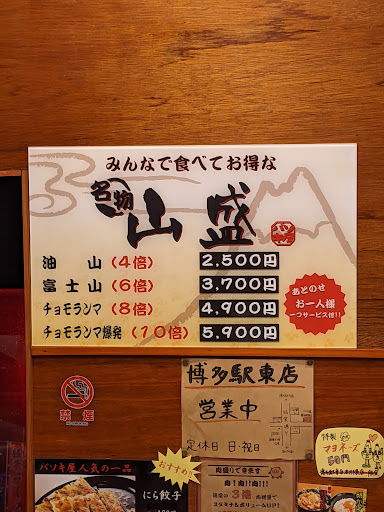 みんなで食べてお得な
名物
山盛
油山(4倍) 2,500円
富士山(6倍) 3,700円
チョモランマ(8倍) 4,900円
チョモランマ爆発(10倍) 5,900円
あとのせ
お一人様
一つサービス付!!
禁煙
博多駅東店
営業中
定休日 日・祝日
特製
マヨネーズ
50円
バソキ屋人気の一品
おすすめ
にら餃子
肉盛りできます
肉!肉!!肉!!!
3倍